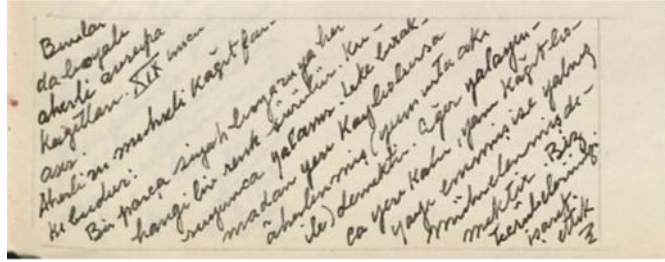 Bunlar
da boyalı
aherli avrupa
kağıtları. XIX uncu
asır.
Aherli ve mühreli kağıt far-
kı budur:
Bir parça siyah boyaya her
hangi bir renk sürülür. Ku-
ruyunca yalanır. Leke bırak-
madan yeri kaybolursa
âherlenmiş (yumurta akı
ile) demektir. Eğer yalayın-
ca yeri kalır, yani kağıt bo-
yayı emmiş ise yalnız
mührelenmiş de-
mektir. Biz
tecrübelerimizi
işaret
ettik